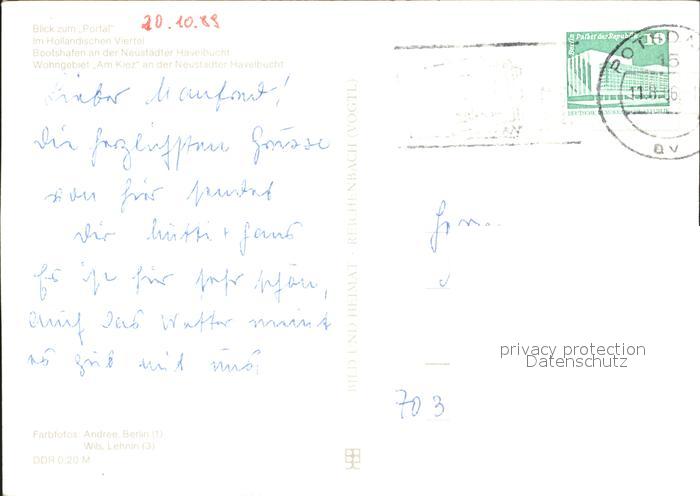 20.10.89
Blick zum „Portal“
Im Holländischen Viertel
Bootshafen an der Neustädter Havelbucht
Wohngebiet „Am Kiez“ an der Neustädter Havelbucht
Lieber Manfred!
Die herzlichsten Grüsse
von hier sendet
Dir Mutti + Hans
Es ist hier sehr schön,
auch das Wetter meint
es gut mit uns.
Farbfotos: Andree, Berlin (1)
Wils, Lehnin (3)
DDR 0,20 M
BILD UND HEIMAT · REICHENBACH (VOGTL)
Berlin Palast der Republik
10
POTSDA
15
11.8.
av
Herrn
703
privacy protection
Datenschutz